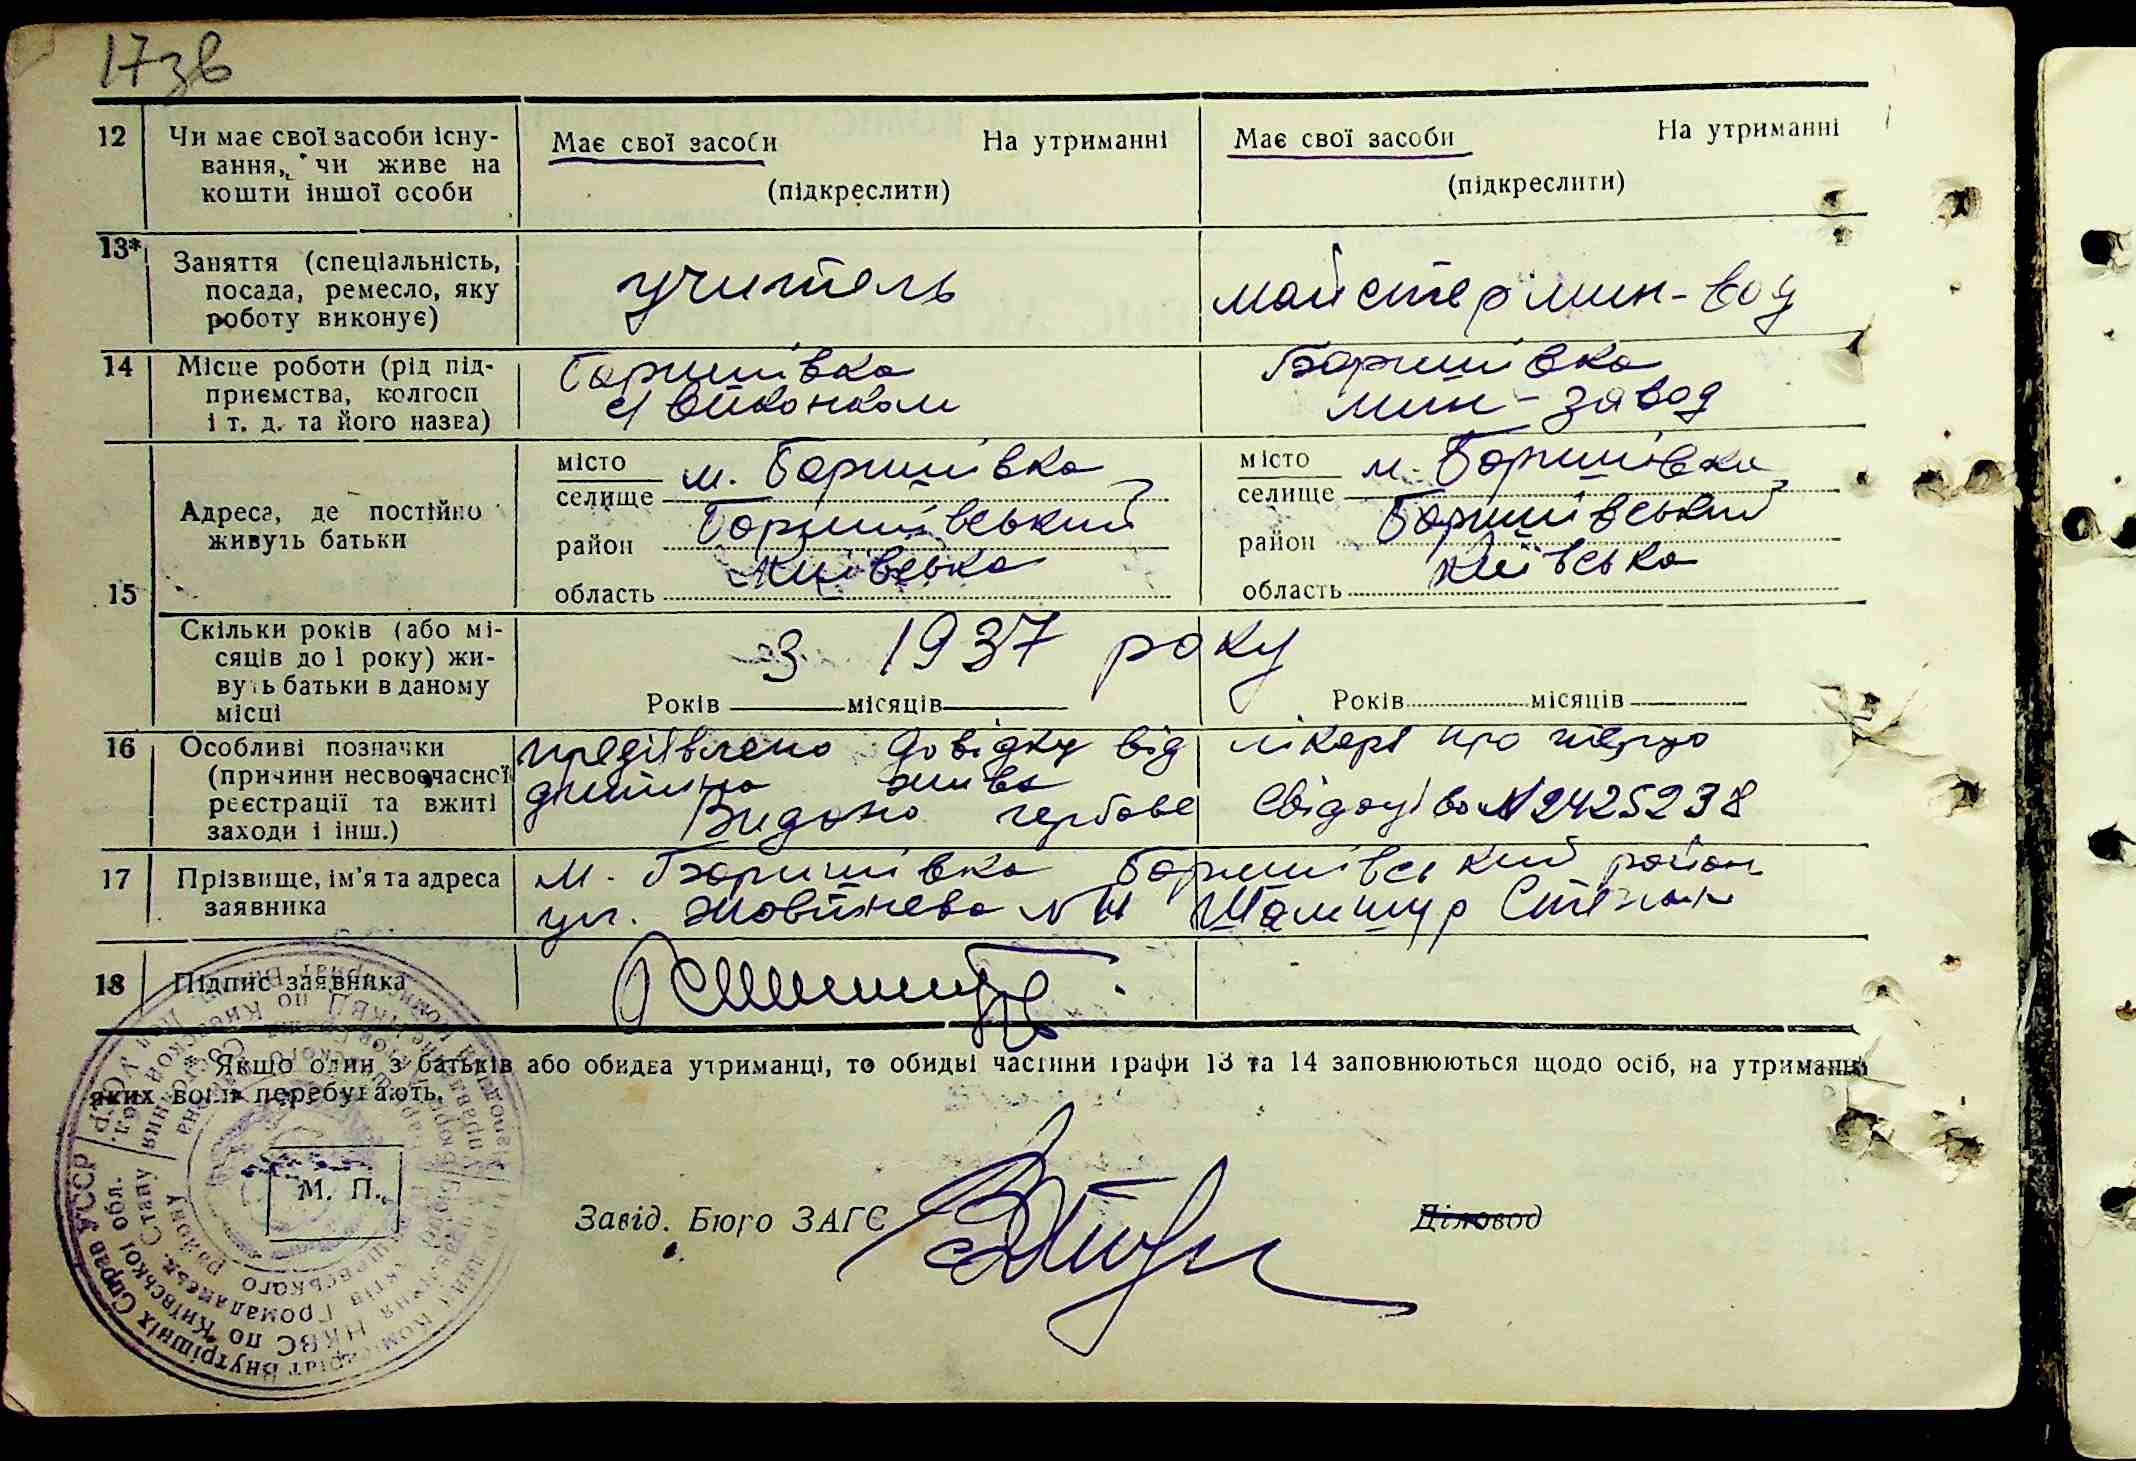 17зв
12 Чи має свої засоби існу- Має свої засоби На утриманні Має свої засоби На утриманні
вання, чи живе на
кошти іншої особи (підкреслити) (підкреслити)
13* Заняття (спеціальність,
посада, ремесло, яку учитель майстер мин-вод
роботу виконує)
14 Місце роботи (рід під- Баришівка Баришівка
приємства, колгосп мин-завод
і т. д. та його назва)
місто м. Баришівка місто м. Баришівка
селище селище
Адреса, де постійно Баришівський Баришівський
живуть батьки район район
Київська Київська
15 область область
Скільки років (або мі- з 1937 року
сяців до 1 року) жи-
вуть батьки в даному
місці Років місяців Років місяців
16 Особливі позначки довідку від лікаря про те що
(причини несвоєчасної дитина жива
реєстрації та вжиті Видано гербове свідоцтво № 2425238
заходи і інш.)
17 Прізвище, ім'я та адреса м. Баришівка Баришівський район
заявника ул. Жовтнева Степан
18 Підпис заявника
Якщо один з батьків або обидва утриманці, то обидві частини графи 13 та 14 заповнюються щодо осіб, на утриманні
яких вони перебувають.
М. П.
Завід. Бюро ЗАГС Діловод